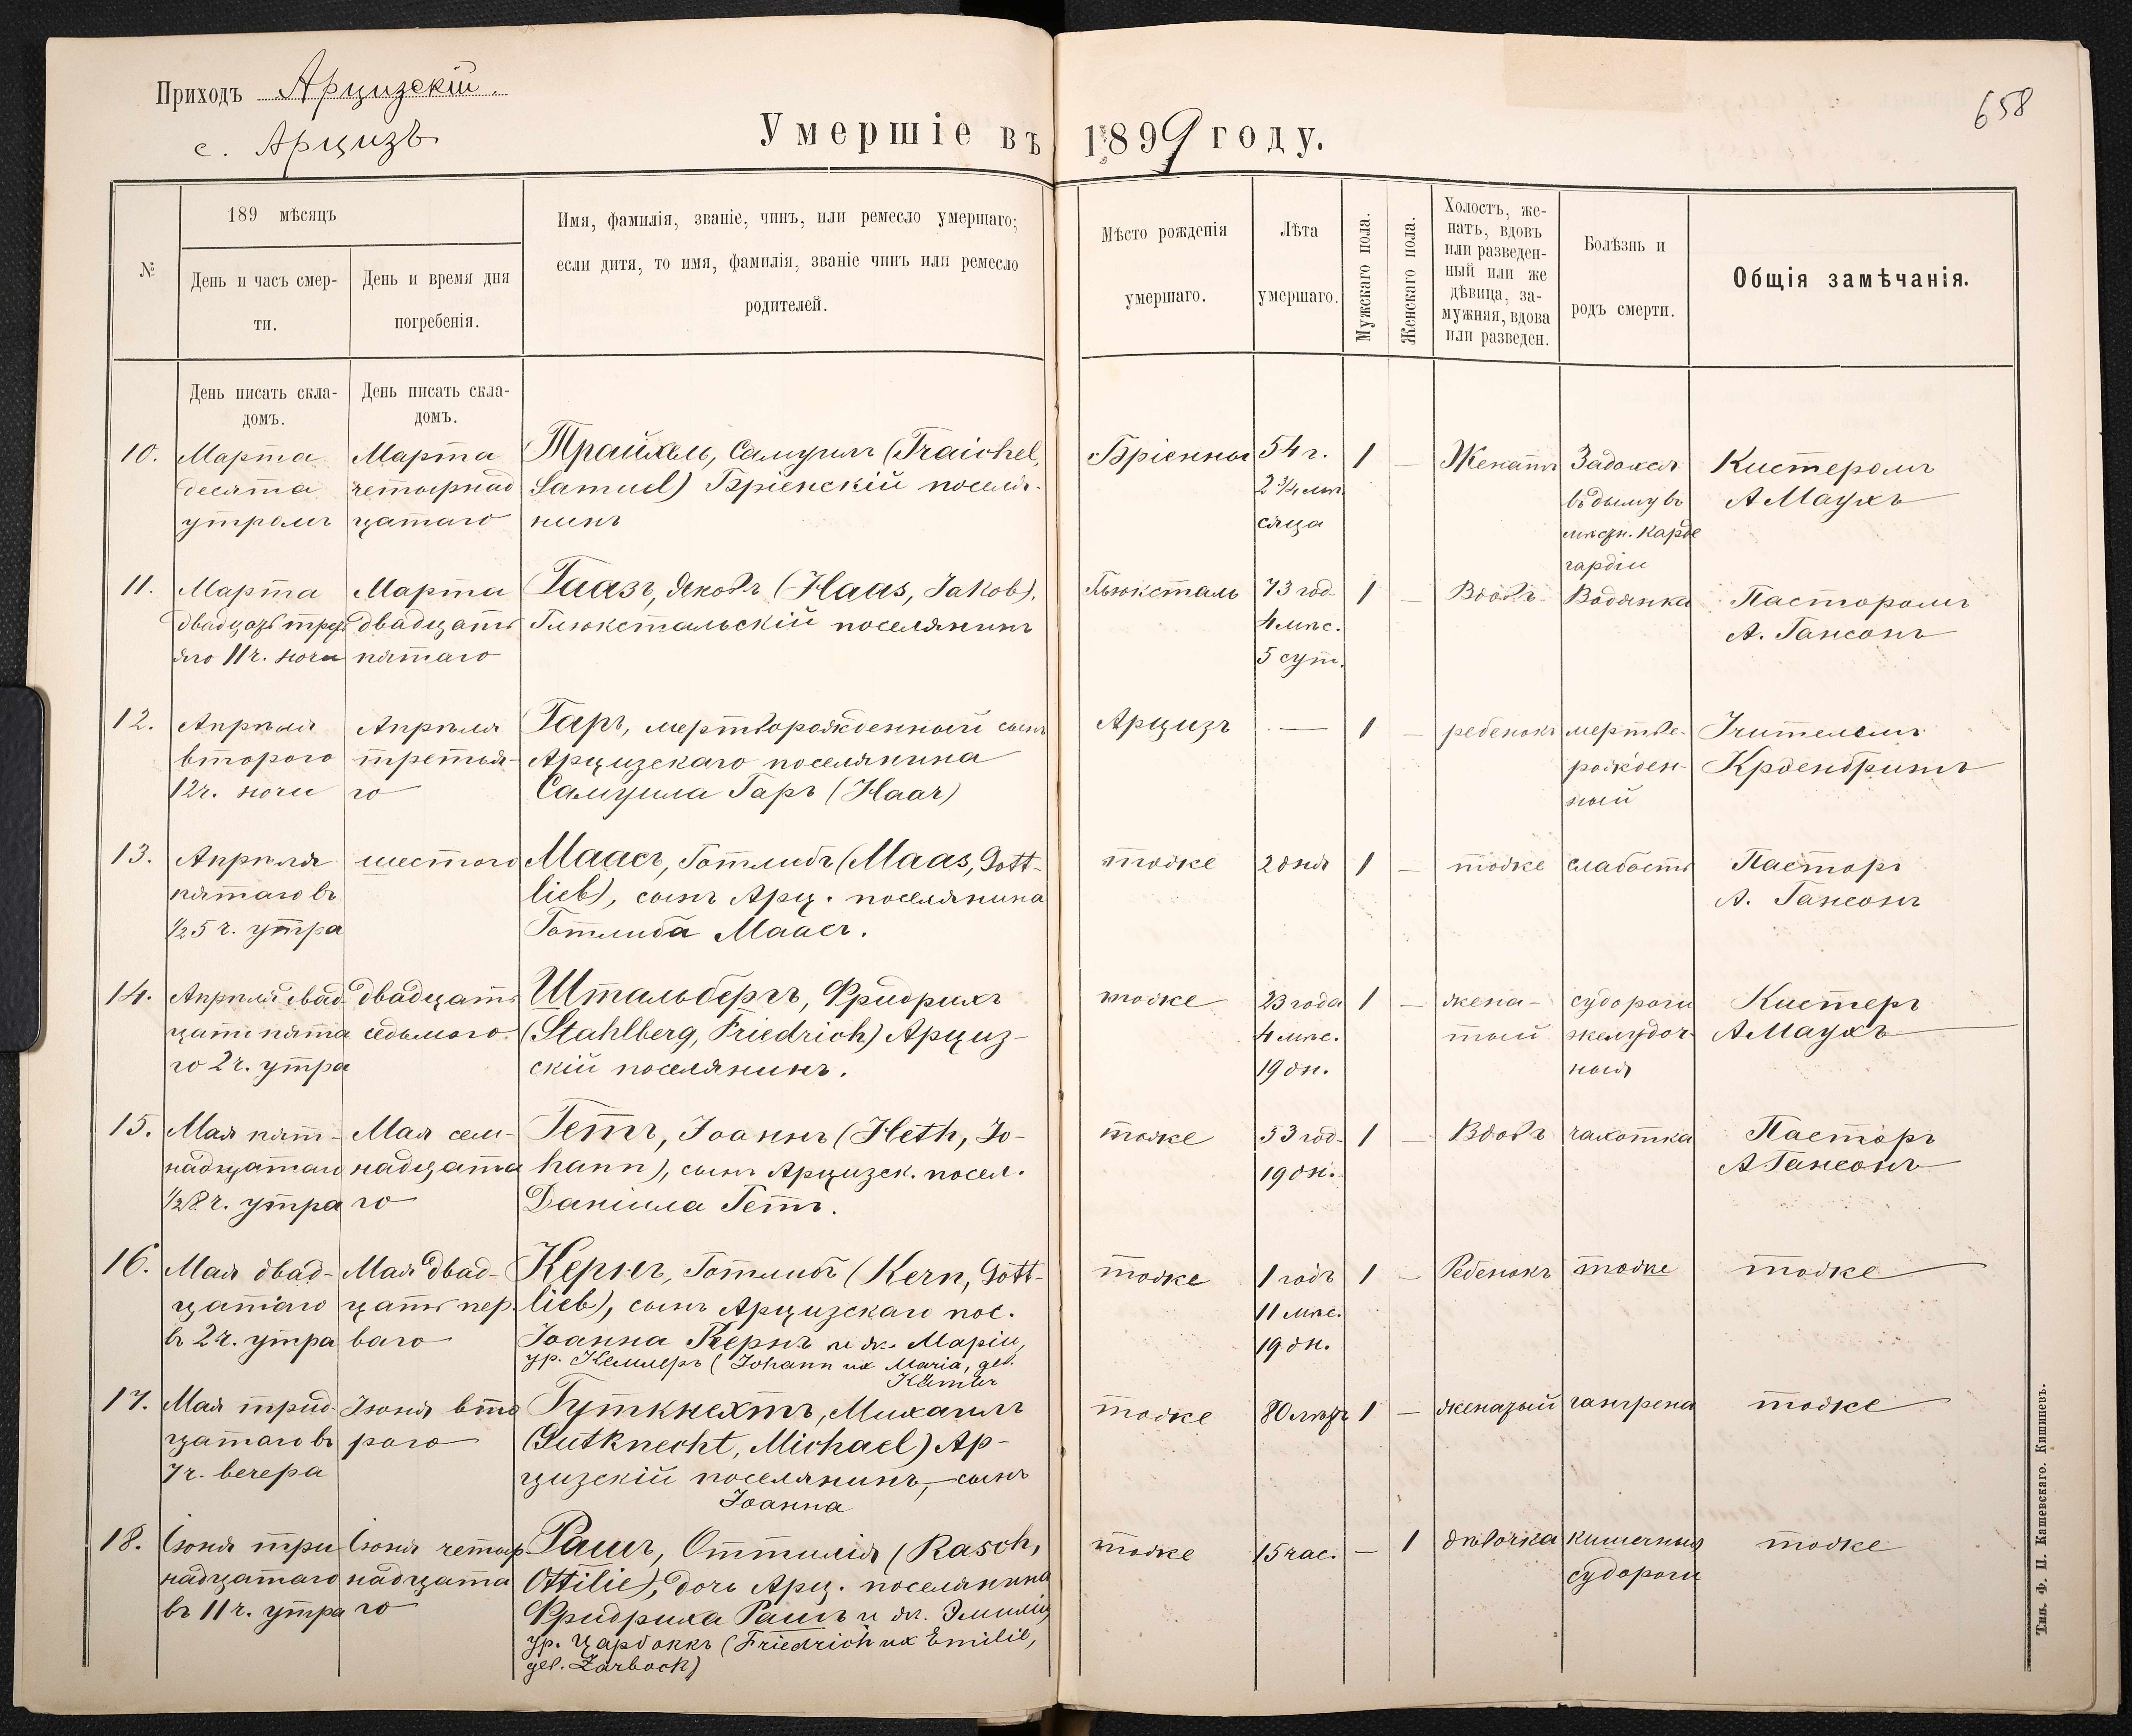 Приходъ Арцизскій.
с. Арцизъ
Умершіе въ 1899 году.
658
№
189 мѣсяцъ
День и часъ смер-
ти.
День и время дня
погребенія.
Имя, фамилія, званіе, чинъ, или ремесло умершаго;
если дитя, то имя, фамилія, званіе чинъ или ремесло
родителей.
Мѣсто рожденія
умершаго.
Лѣта
умершаго.
Мужскаго пола.
Женскаго пола.
Холостъ, же-
натъ, вдовъ
или разведен-
ный или же
дѣвица, за-
мужняя, вдова
или разведен.
Болѣзнь и
родъ смерти.
Общія замѣчанія.
День писать скла-
домъ.
День писать скла-
домъ.
10.
Марта
десята
утромъ
Марта
четырнад
цатаго
Трайхель, Самуилъ (Traichel,
Samuel) Бріенскій поселя-
нинъ
Бріенны
54 г.
2 3/4 мѣ
сяца
1
—
Женатъ
Задохся
въ дыму въ
гардіи
Кистеромъ
А Маухъ
11.
Марта
двадцать треть
яго 11 ч. ночи
Марта
двадцать
пятаго
Гаазъ, Яковъ (Haas, Jakob),
Глюкстальскій поселянинъ
Глюксталь
73 год.
4 мѣс.
5 сут.
1
—
Вдовъ
Водянка
Пасторомъ
А. Гансонъ
12.
Апрѣля
второго
12 ч. ночи
Апрѣля
третья-
го
Гаръ, мертворожденный сынъ
Арцизскаго поселянина
Самуила Гаръ (Haar)
Арцизъ
—
1
—
ребенокъ
мертво-
рожден-
ный
Учителемъ
13.
Апрѣля
пятаго въ
1/2 5 ч. утра
шестого
Маасъ, Готлибъ (Maas, Gott-
lieb), сынъ Арц. поселянина
Готлиба Маасъ.
тоже
2 дня
1
—
тоже
слабость
Пасторъ
А. Гансонъ
14.
Апрѣля двад-
цать пята
го 2 ч. утра
двадцать
седьмого.
Штальбергъ, Фридрихъ
(Stahlberg, Friedrich) Арциз-
скій поселянинъ.
тоже
23 года
4 мѣс.
19 дн.
1
—
жена-
тый
судороги
желудоч-
ныя
Кистеръ
А Маухъ
15.
Мая пят-
надцатаго
1/2 8 ч. утра
Мая сем-
надцата
го
Гетъ, Іоаннъ (Heth, Jo-
hann), сынъ Арцизск. посел.
Даніила Гетъ.
тоже
53 год.
19 дн.
1
—
Вдовъ
чахотка
Пасторъ
А Гансонъ
16.
Мая двад-
цатаго
въ 2 ч. утра
Мая двад-
цать пер-
ваго
Кернъ, Готлибъ (Kern, Gott-
lieb), сынъ Арцизскаго пос.
Іоанна Кернъ и ж. Маріи,
ур. Кемлеръ (Johann ux Maria, geb.
Kämler
тоже
1 годъ
11 мѣс.
19 дн.
1
—
Ребенокъ
тоже
тоже
17.
Мая трид-
цатаго въ
7 ч. вечера
Іюня вто
рого
Гуткнехтъ, Михаилъ
(Gutknecht, Michael) Ар-
цизскій поселянинъ, сынъ
Іоанна
тоже
80 лѣтъ
1
—
женатый
гангрена
тоже
18.
Іюня три
надцатаго
въ 11 ч. утра
Іюня четыр
надцата
го
Рашъ, Оттилія (Rasch,
Ottilie), дочь Арц. поселянина
Фридриха Рашъ и ж. Эмиліи,
ур. Царбоккъ (Friedrich ux Emilie,
geb. Zarbock)
тоже
15 час.
—
1
дѣвочка
кишечныя
судороги
тоже
Тип. Ф. П. Кашевскаго. Кишиневъ.